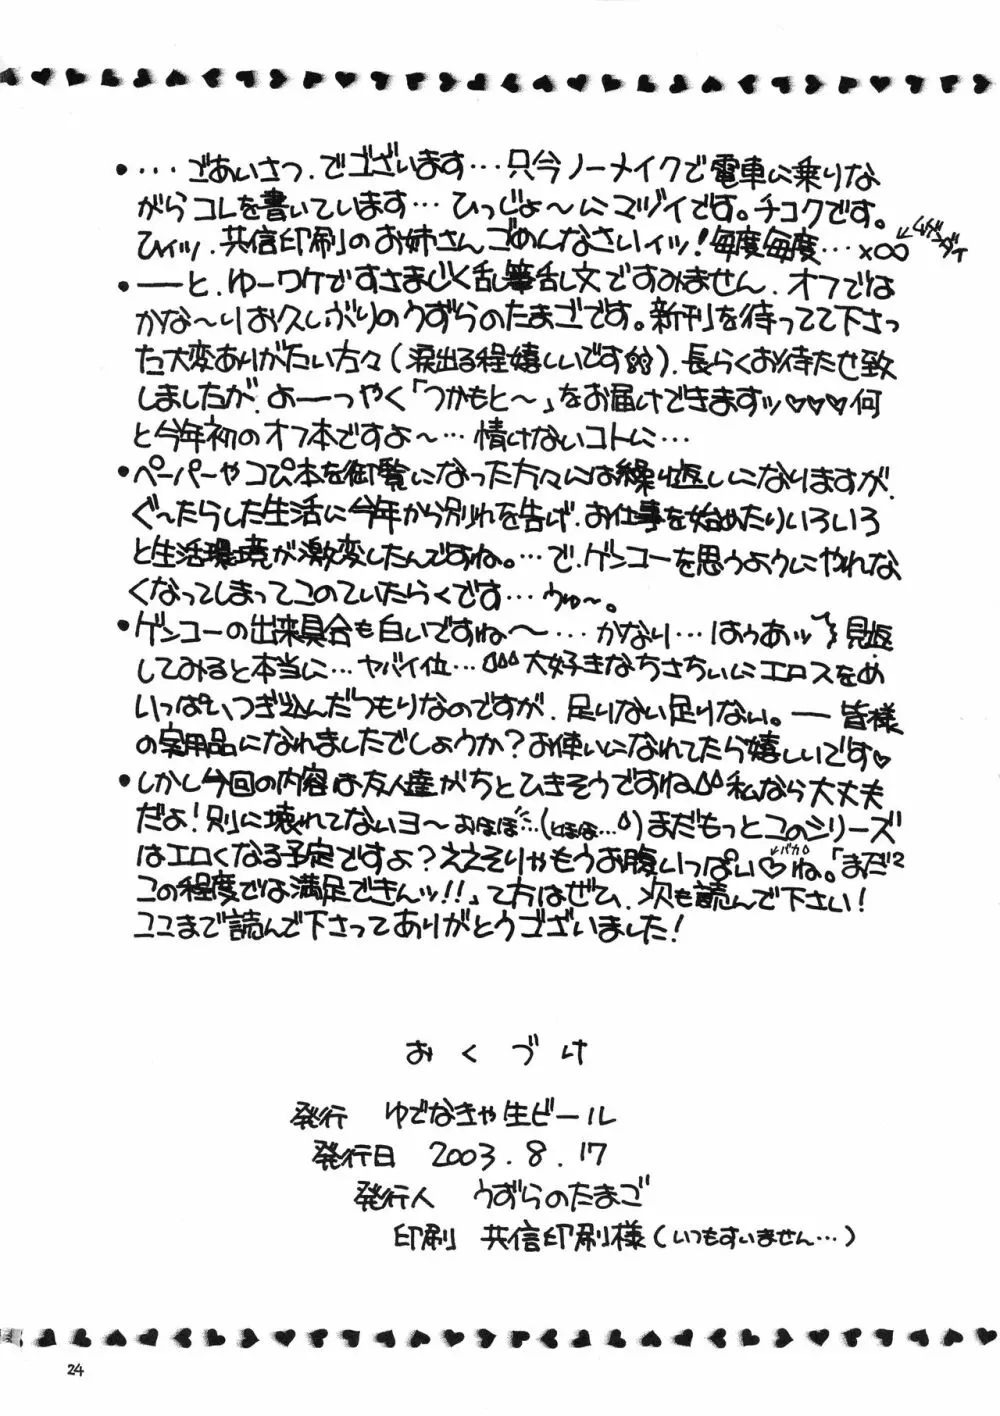 ・…ごあいさつ.でゴざいます…只今ノーメイクで電車に乗りな
がらコレを書いています…ひっじょ〜にマヅイです。チコクです。
ひィッ.共信印刷のお姉さんゴめんなさいィッ!毎度毎度…×∞
←ムゲンダイ
・――と.ゆーワケですさまじく乱筆乱文ですみません.オフでは
かな〜りお久しぶりのうずらのたまごです。新刊を待ってて下さっ
た大変ありがたい方々(涙出る程嬉しいです).長らくお待たせ致
しましたが.よーっつやく「つかもと〜」をお届けできますッ♡♡♡何
と今年初のオフ本ですよ〜…情けないコトに…
・ペーパーやコピ本を御覧になった方々には繰り返しになりますが.
ぐ〜たらした生活に今年から別れを告げ.お仕事を始めたりいろいろ
と生活環境が激変したんですね。…で.ゲンコーを思うようにやれな
くなってしまってこのていたらくです…うゅ〜。
・ゲンコーの出来具合も白いですね〜…かなり…はぅあッ 見返
してみると本当に…ヤバイ位…大好きなちさちぃにエロスをめ
いっぱいつぎ込んだつもりなのですが.足りない足りない。――皆様
の実用品になれましたでしょうか?お使いになれてたら嬉しいです♡
・しかし今回の内容は友人達がちとひきそうですね 私なら大丈夫
だよ!別に壊れてないヨ〜おほほ…(とほほ…)まだもっとこのシリーズ
はエロくなる予定ですよ?ええそりゃもうお腹いっぱい♡ね。「まだ²
←バカ
この程度では満足できんッ!!」て方はぜひ.次も読んで下さい!
ここまで読んで下さってありがとうございました!
おくづけ
発行 ゆでなきゃ生ビール
発行日 2003.8.17
発行人 うずらのたまご
印刷 共信印刷様(いつもすいません…)
24